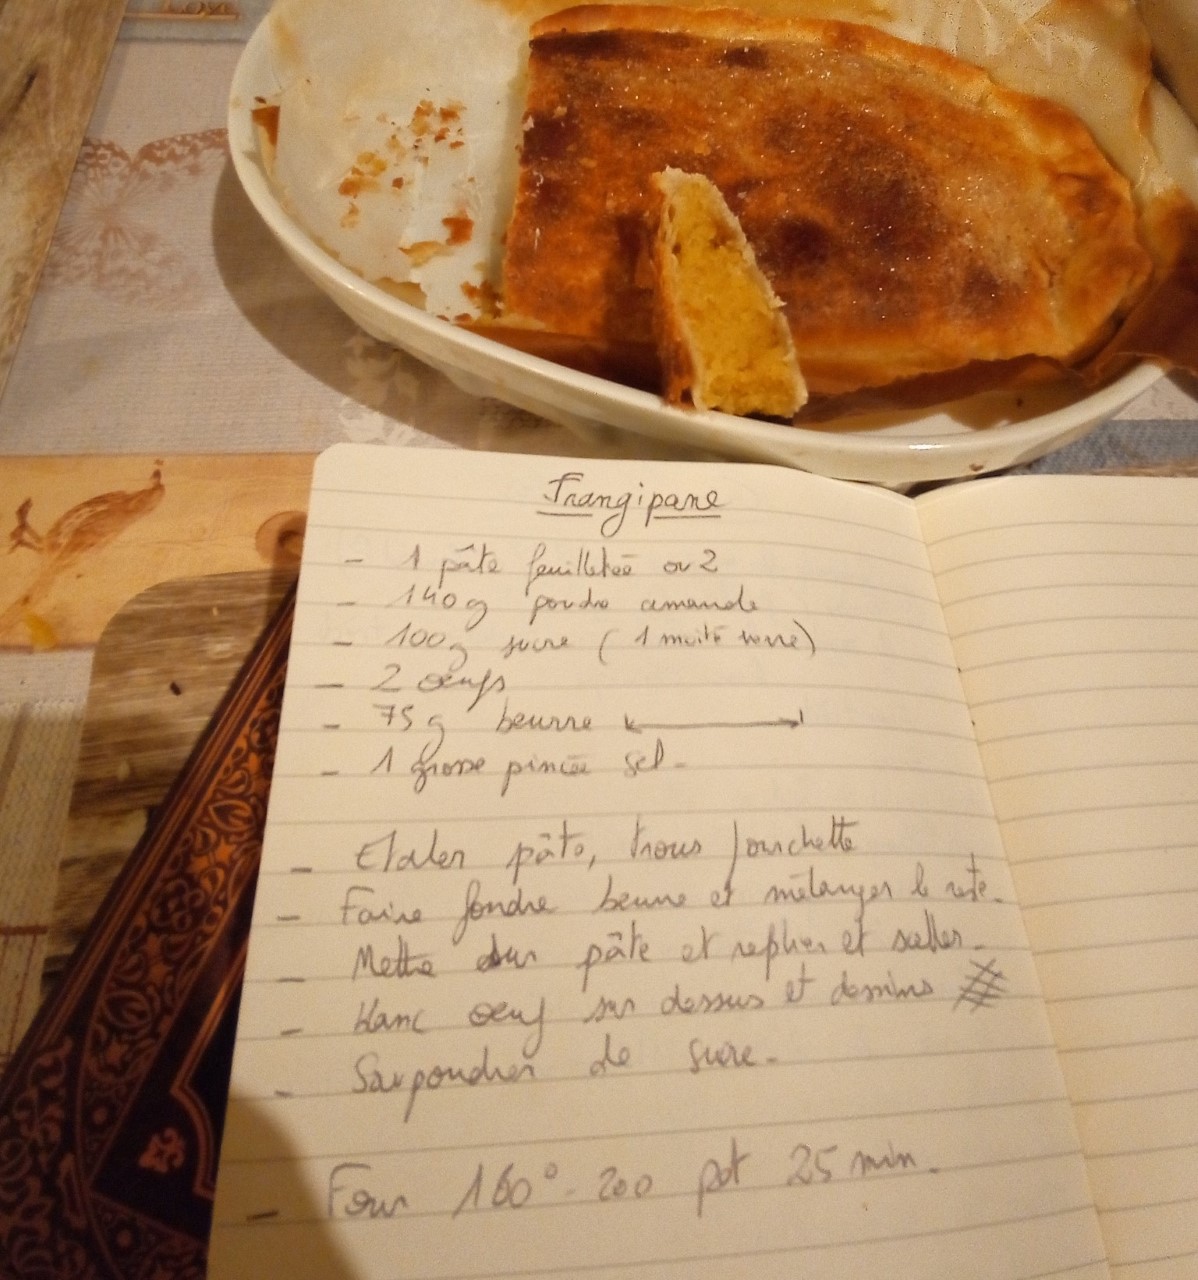 LOVE
Frangipane
- 1 pâte feuilletée ou 2
- 140g poudre amande
- 100g sucre ( 1 moitié verre)
- 2 œufs
- 75g beurre
- 1 grosse pincée sel.
- Etaler pâte, trous fourchette
- Faire fondre beurre et mélanger le reste.
- Mettre sur pâte et replier et sceller.
- blanc œuf sur dessus et dessins
- Saupoudrer de sucre.
- Four 160° - 200 pdt 25 min.